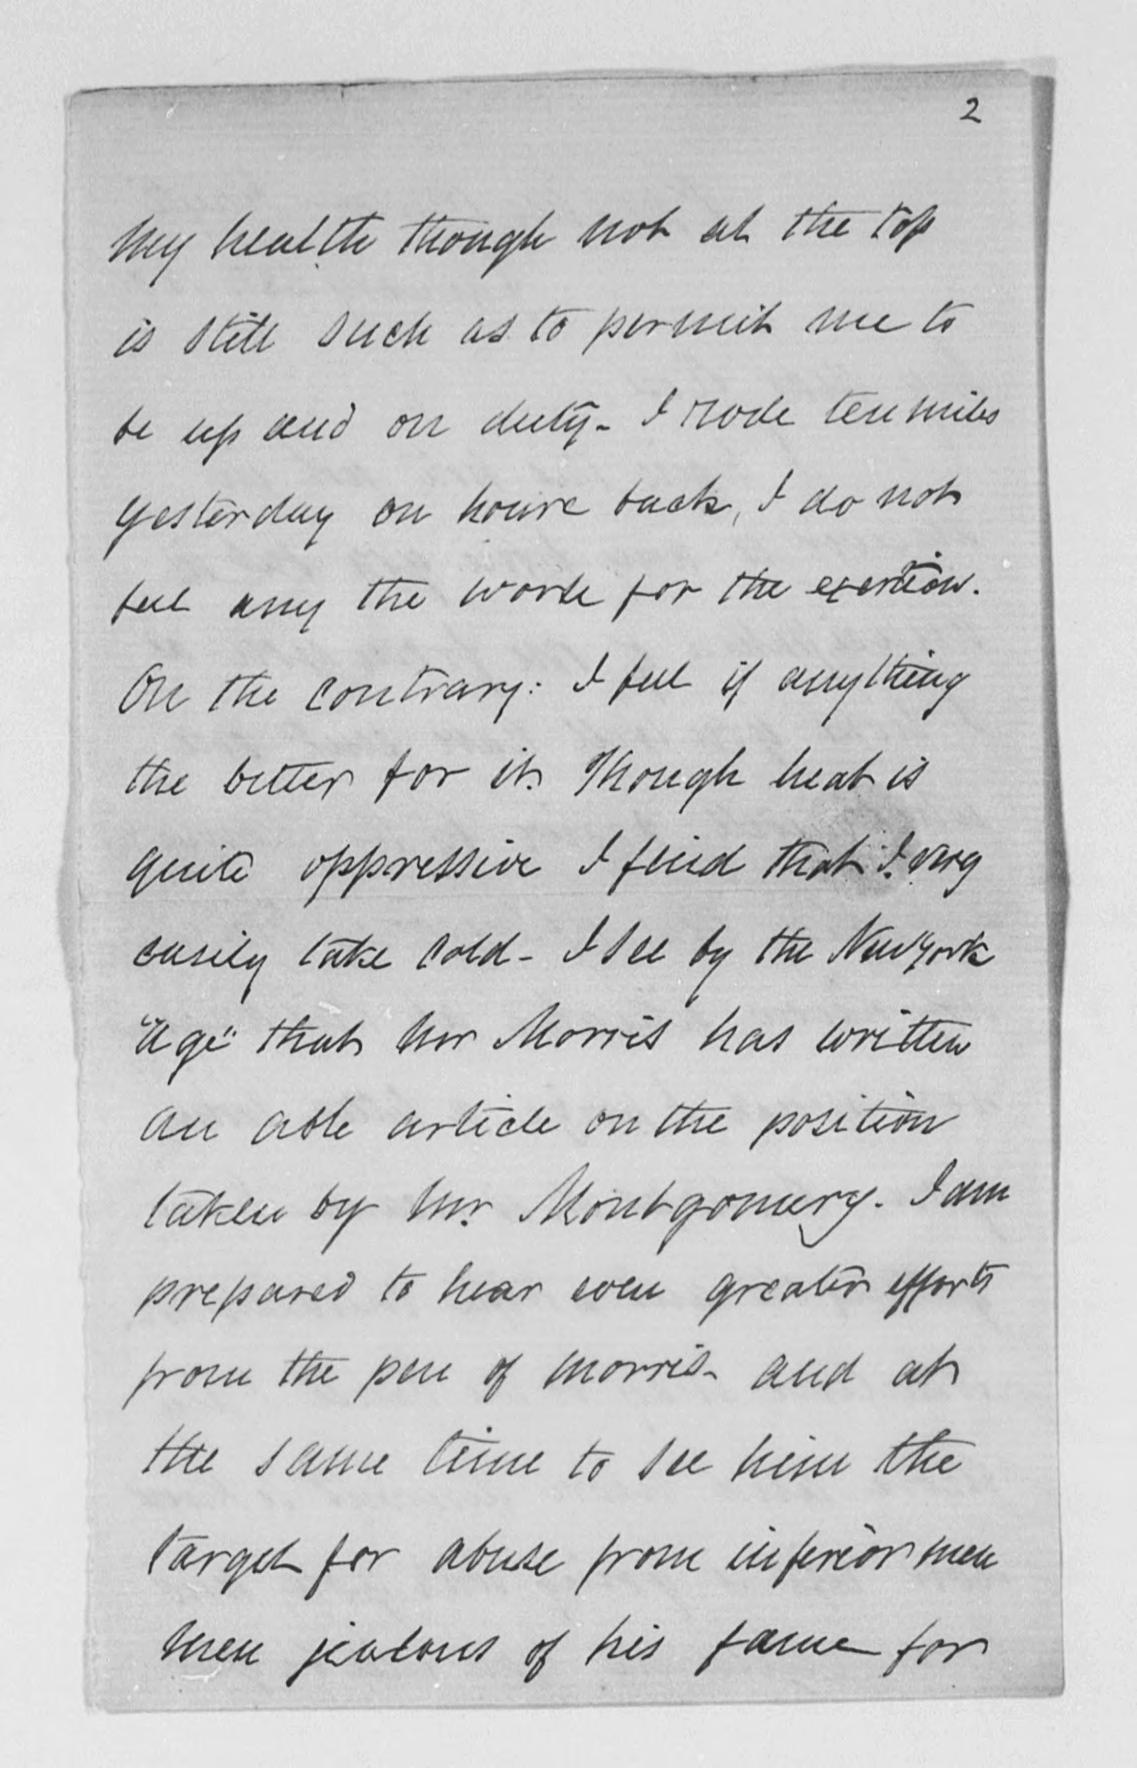 2
My health though not at the top
is still such as to permit me to
be up and on duty - I rode ten miles
yesterday on horse back, I do not
feel any the worse for the exertion.
On the contrary: I feel if anything
the better for it. Though heat is
quite oppressive I find that I very
easily take cold - I see by the New York
"Age" that Mr Morris has written
an able article on the position
taken by Mr. Montgomery. I am
prepared to hear even greater efforts
from the pen of Morris - and at
the same time to see him the
target for abuse from inferior men
men jealous of his fame for